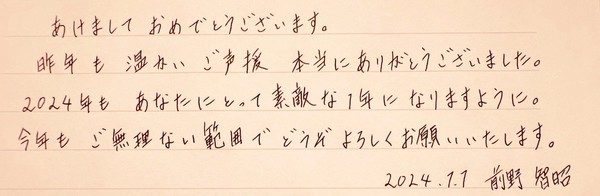 あけまして おめでとうございます。
昨年も 温かい ご声援 本当に ありがとうございました。
2024年も あなたにとって 素敵な1年に なりますように。
今年も ご無理ない範囲で どうぞ よろしくお願いいたします。
2024.1.1 前野 智昭